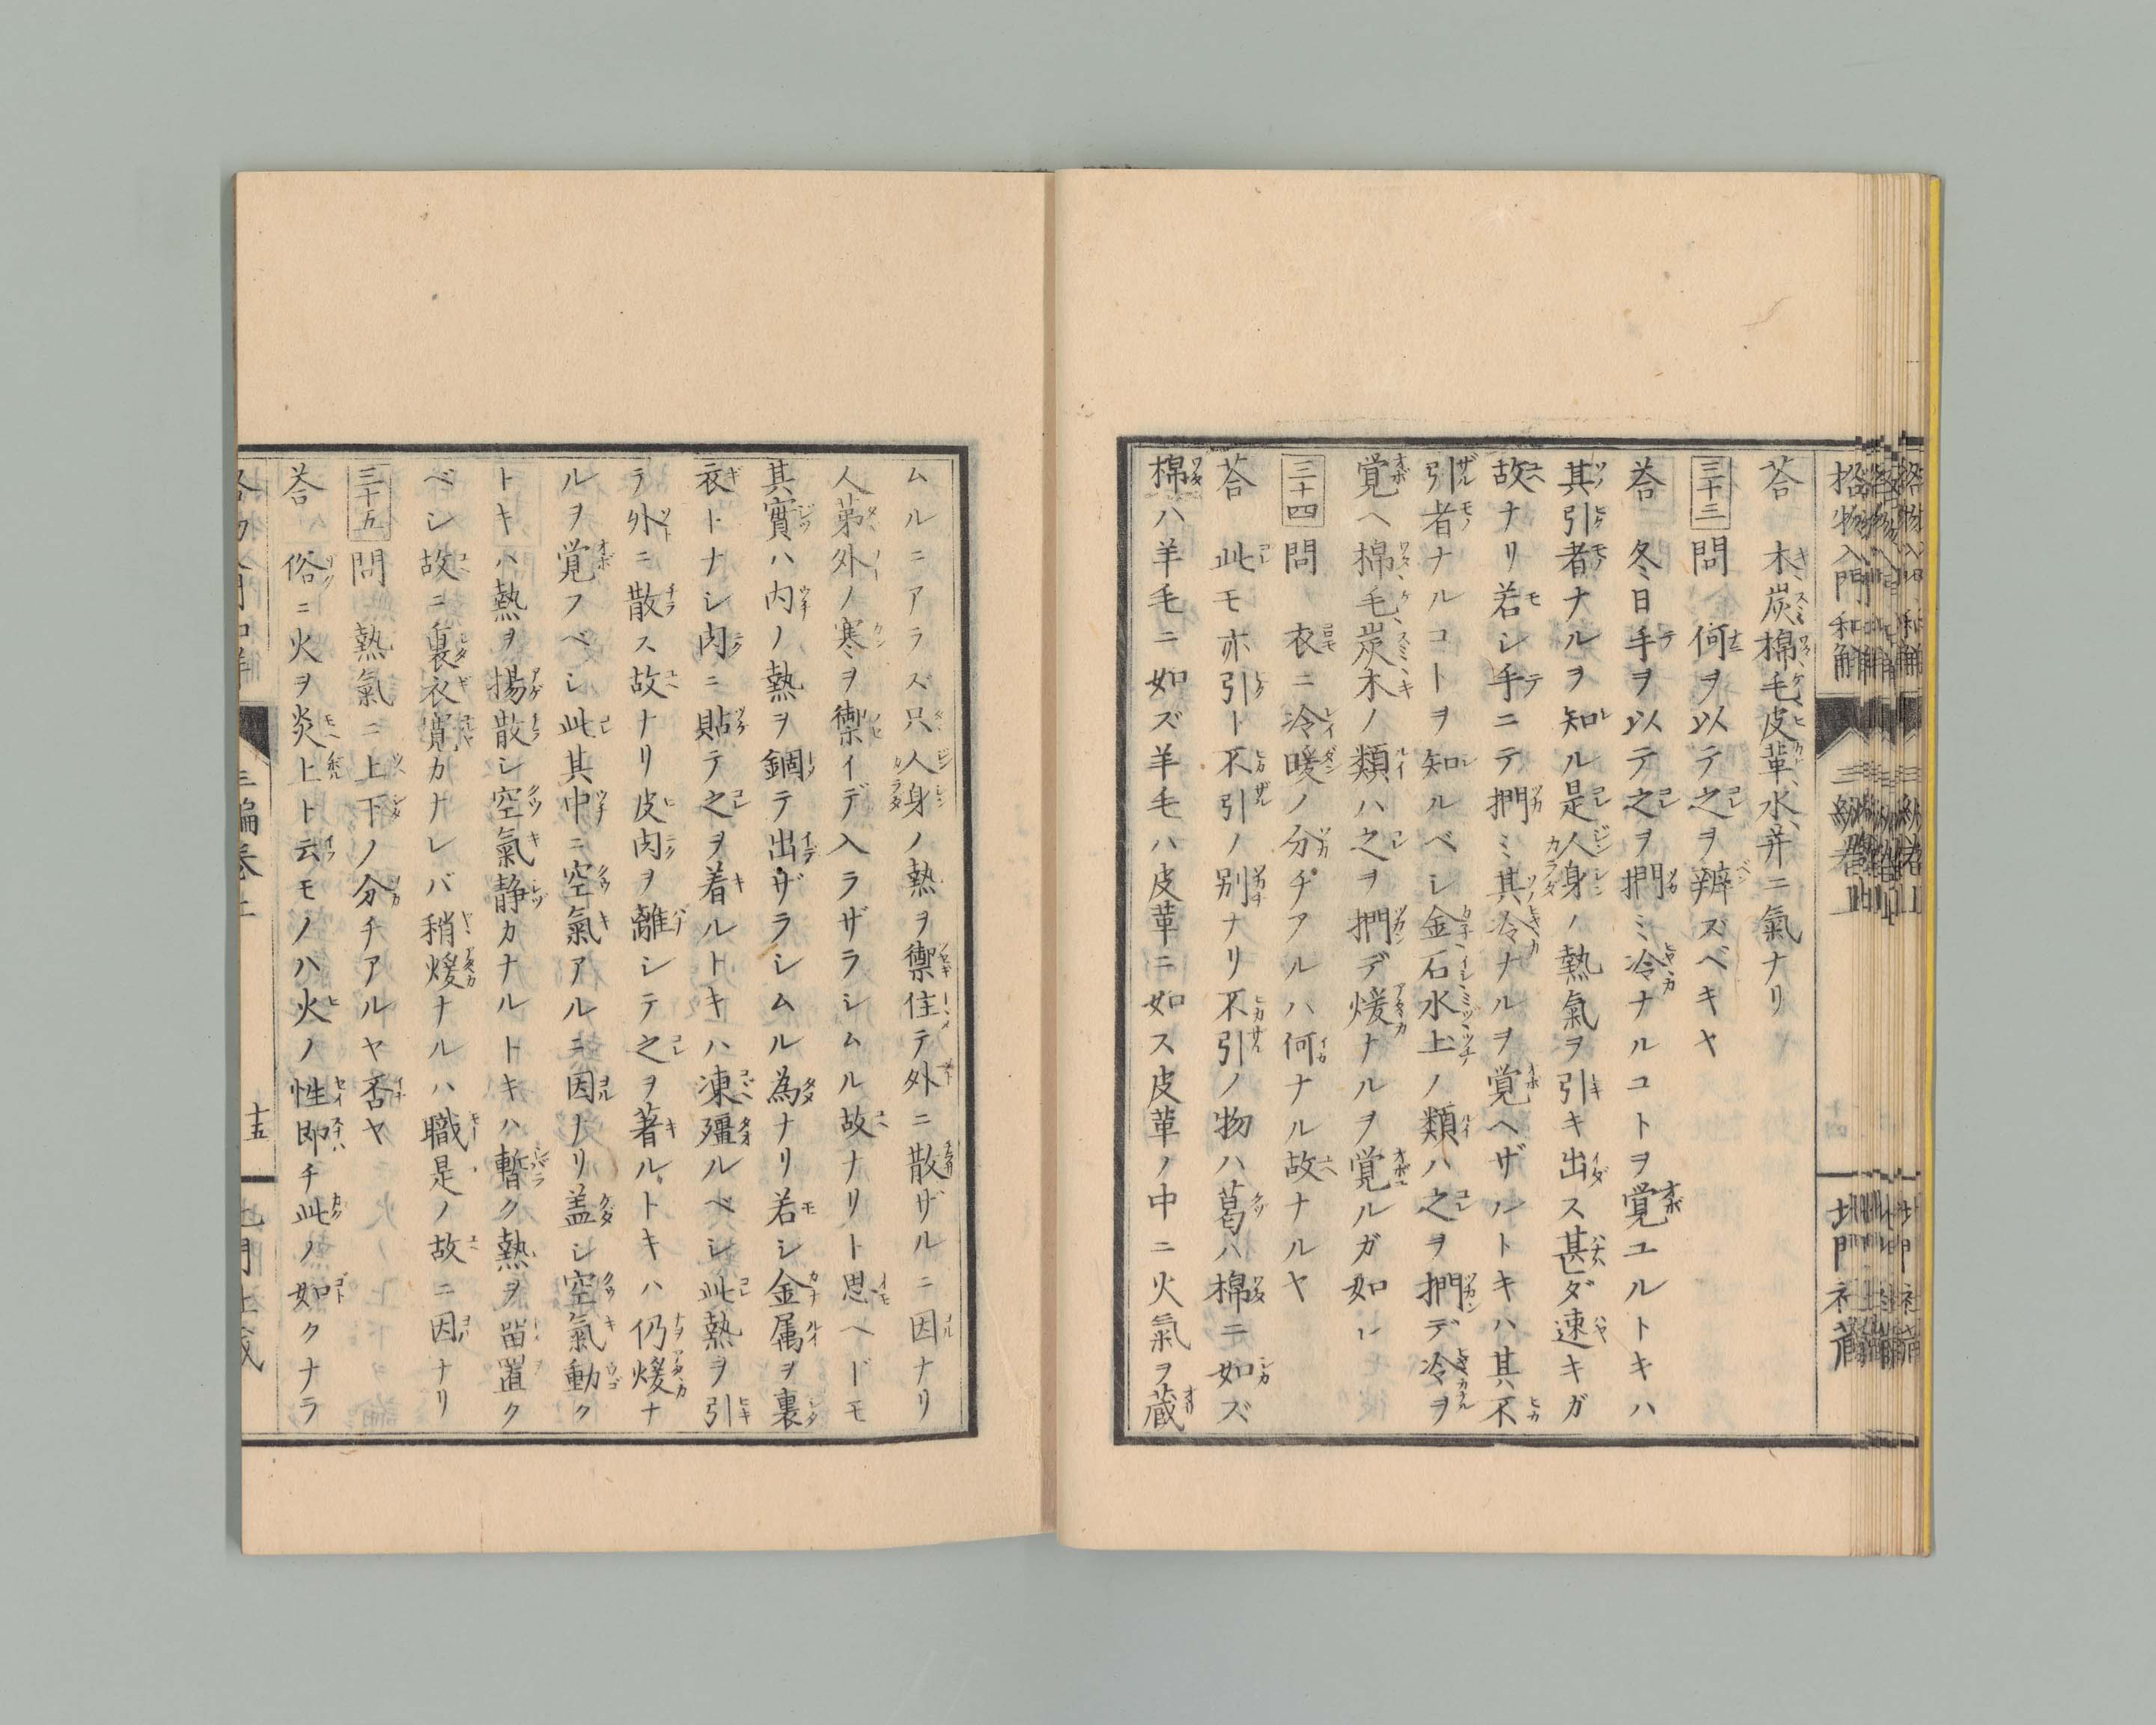 格物入門和解 三編卷上 北門社藏
答 木炭棉毛皮革水幷ニ氣ナリ
三十三 問 何ヲ以テ之ヲ辨ズベキヤ
答 冬日手ヲ以テ之ヲ捫ミ冷ナルコトヲ覚ユルトキハ
其引者ナルヲ知ル是人身ノ熱氣ヲ引キ出ス甚ダ速キガ
故ナリ若シ手ニテ捫ミ其冷ナルヲ覚ヘザルトキハ其不
引者ナルコトヲ知ルベシ金石水土ノ類ハ之ヲ捫デ冷ヲ
覚ヘ棉毛炭木ノ類ハ之ヲ捫デ煖ナルヲ覚ルガ如シ
三十四 問 衣ニ冷暖ノ分チアルハ何ナル故ナルヤ
答 此モ亦引ト不引ノ別ナリ不引ノ物ハ葛ハ棉ニ如ズ
棉ハ羊毛ニ如ズ羊毛ハ皮革ニ如ス皮革ノ中ニ火氣ヲ蔵
ムルニアラズ只人身ノ熱ヲ禦住テ外ニ散ザルニ因ナリ
人第外ノ寒ヲ禦イデ入ラザラシムル故ナリト思ヘドモ
其實ハ内ノ熱ヲ錮テ出ザラシムル為ナリ若シ金属ヲ裏
衣トナシ肉ニ貼テ之ヲ着ルトキハ凍殭ルベシ此熱ヲ引
テ外ニ散ス故ナリ皮肉ヲ離シテ之ヲ著ルトキハ仍煖ナ
ルヲ覚フベシ此其中ニ空氣アルニ因ナリ盖シ空氣動ク
トキハ熱ヲ揚散シ空氣静カナルトキハ暫ク熱ヲ畄置ク
ベシ故ニ裏衣寛カナレバ稍煖ナルハ職是ノ故ニ因ナリ
三十五 問 熱氣ニ上下ノ分チアルヤ否ヤ
答 俗ニ火ヲ炎上ト云モノハ火ノ性即チ此ノ如クナラ
格物入門和解 三編卷上 十五 北門社藏